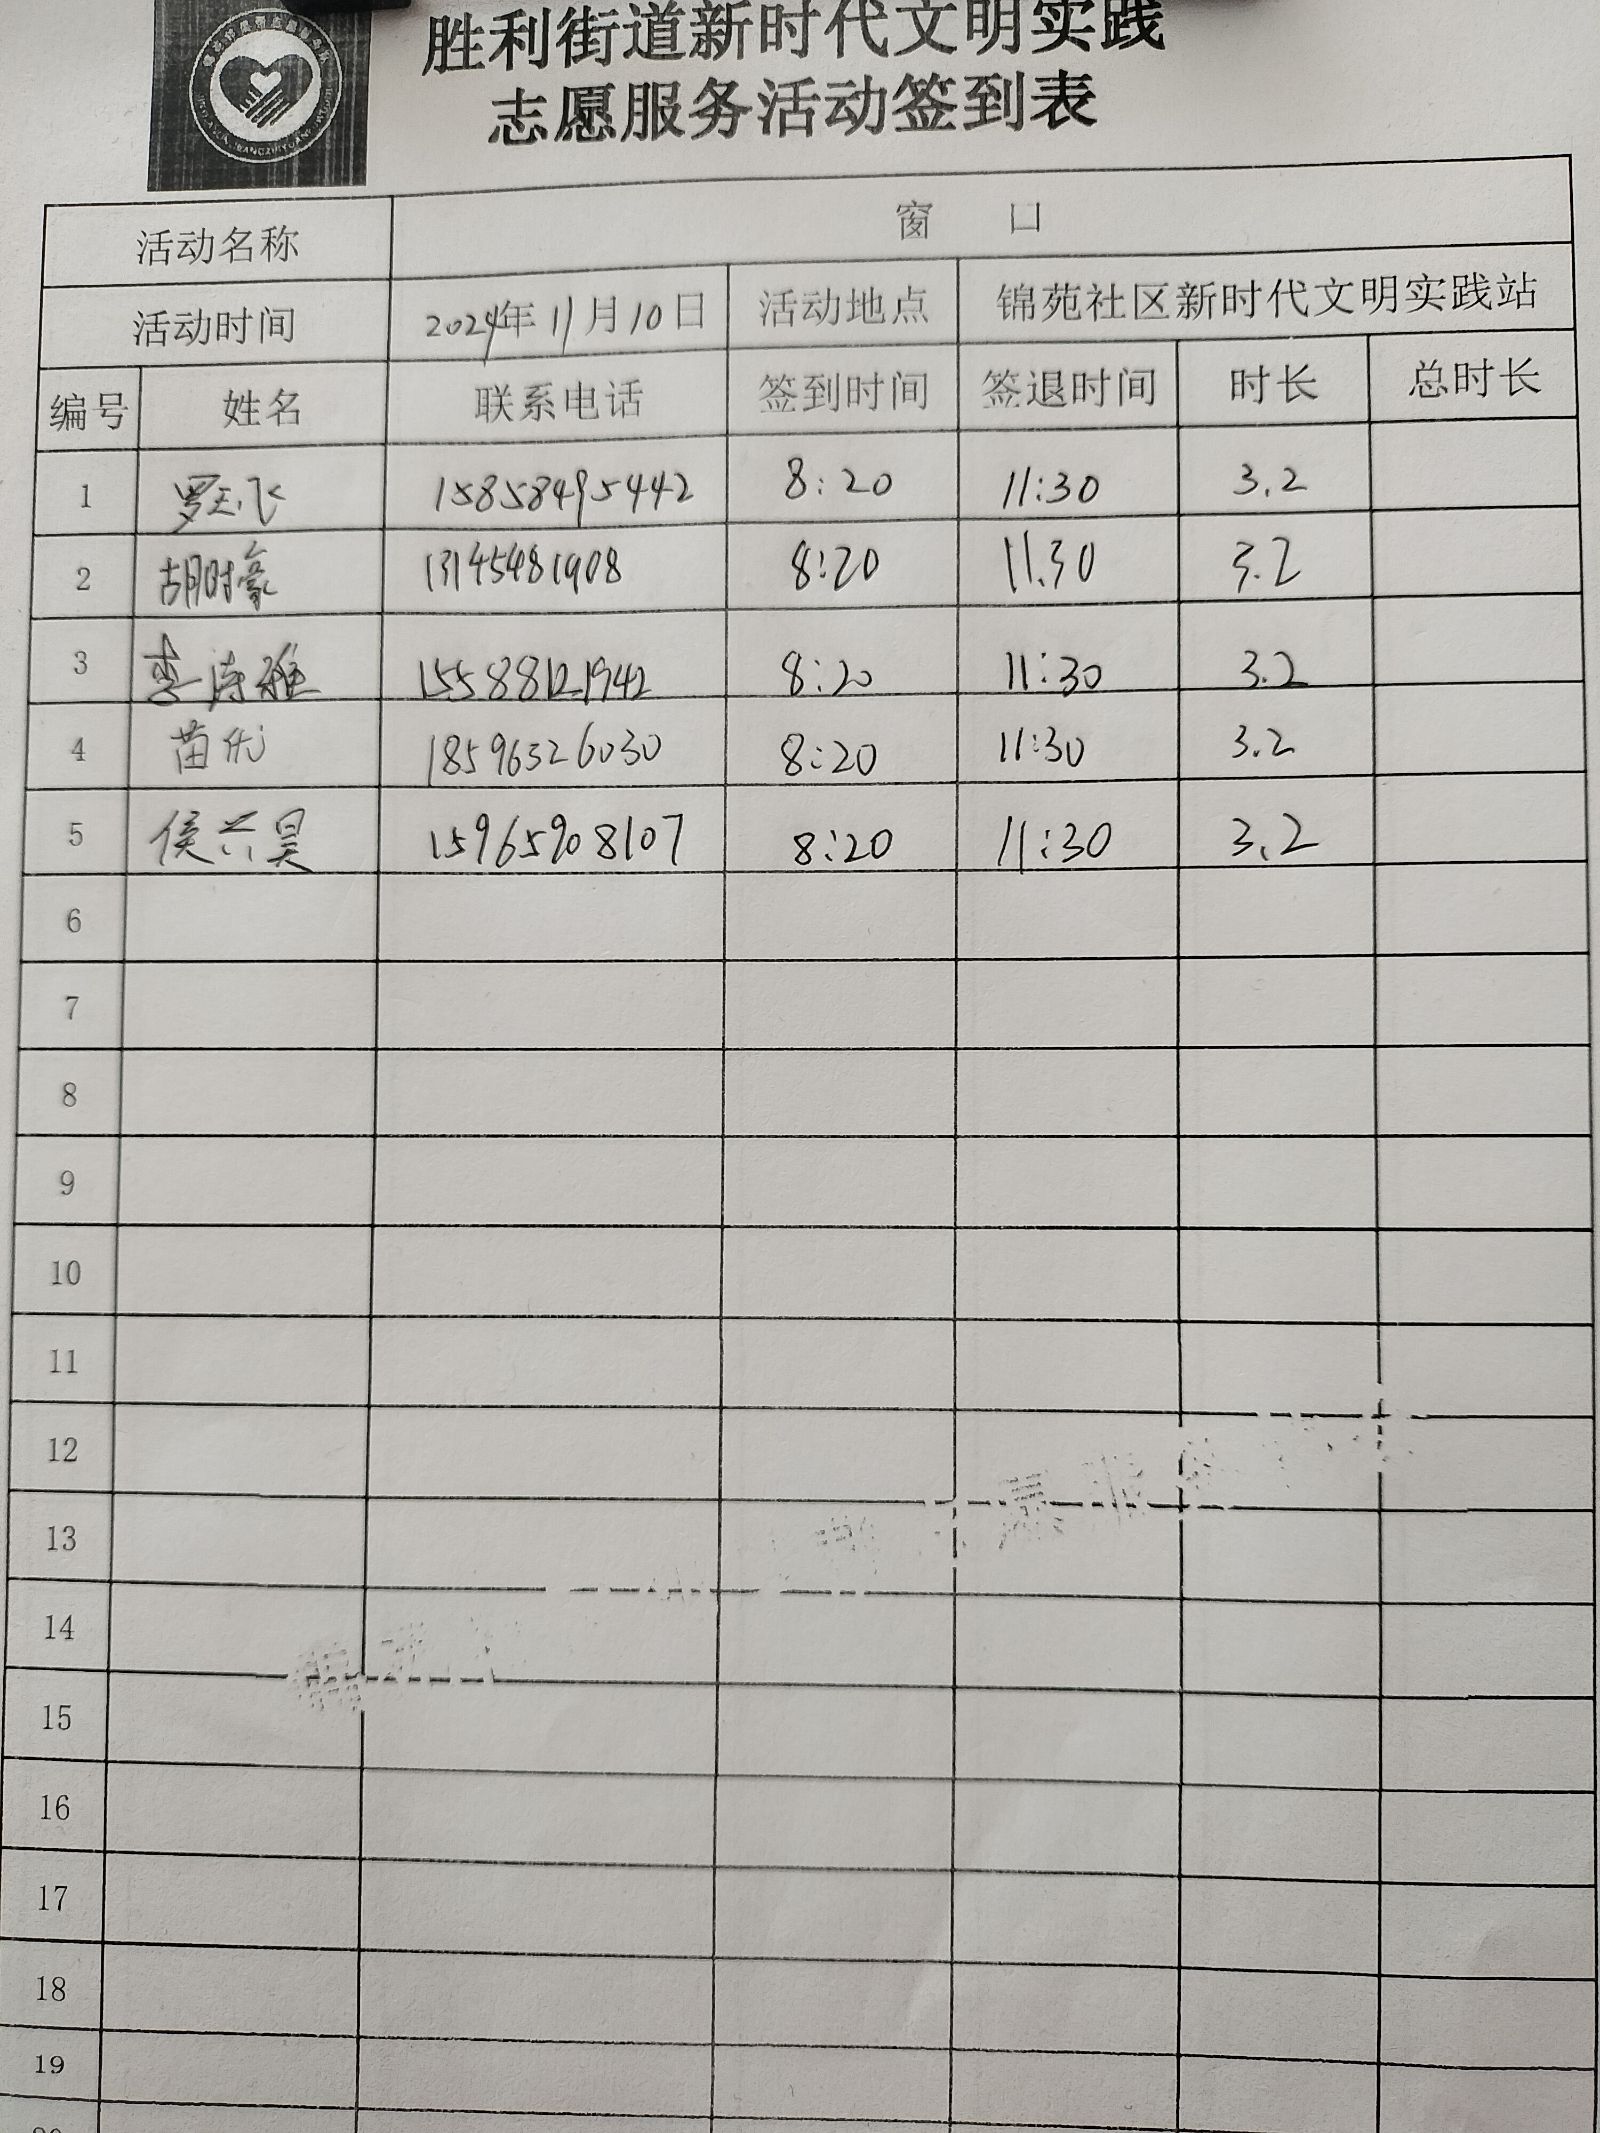 胜利街道新时代文明实践
志愿服务活动签到表
活动名称 窗 口
活动时间 2024年11月10日 活动地点 锦苑社区新时代文明实践站
编号 姓名 联系电话 签到时间 签退时间 时长 总时长
1 罗玉飞 15858495442 8:20 11:30 3.2
2 胡时豪 13145481908 8:20 11.30 3.2
3 李涛雅 15588121942 8:20 11:30 3.2
4 苗 18596326030 8:20 11:30 3.2
5 侯兴昊 15965908107 8:20 11:30 3.2
6
7
8
9
10
11
12
13
14
15
16
17
18
19